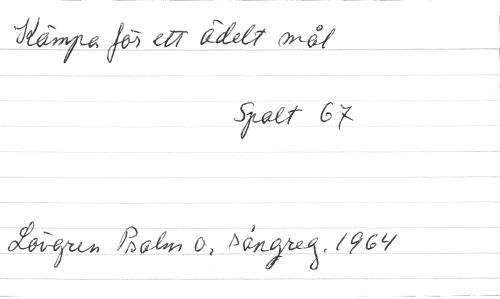 Kämpa för ett ädelt mål
Spalt 67
Lövgren Psalm o. sångreg. 1964